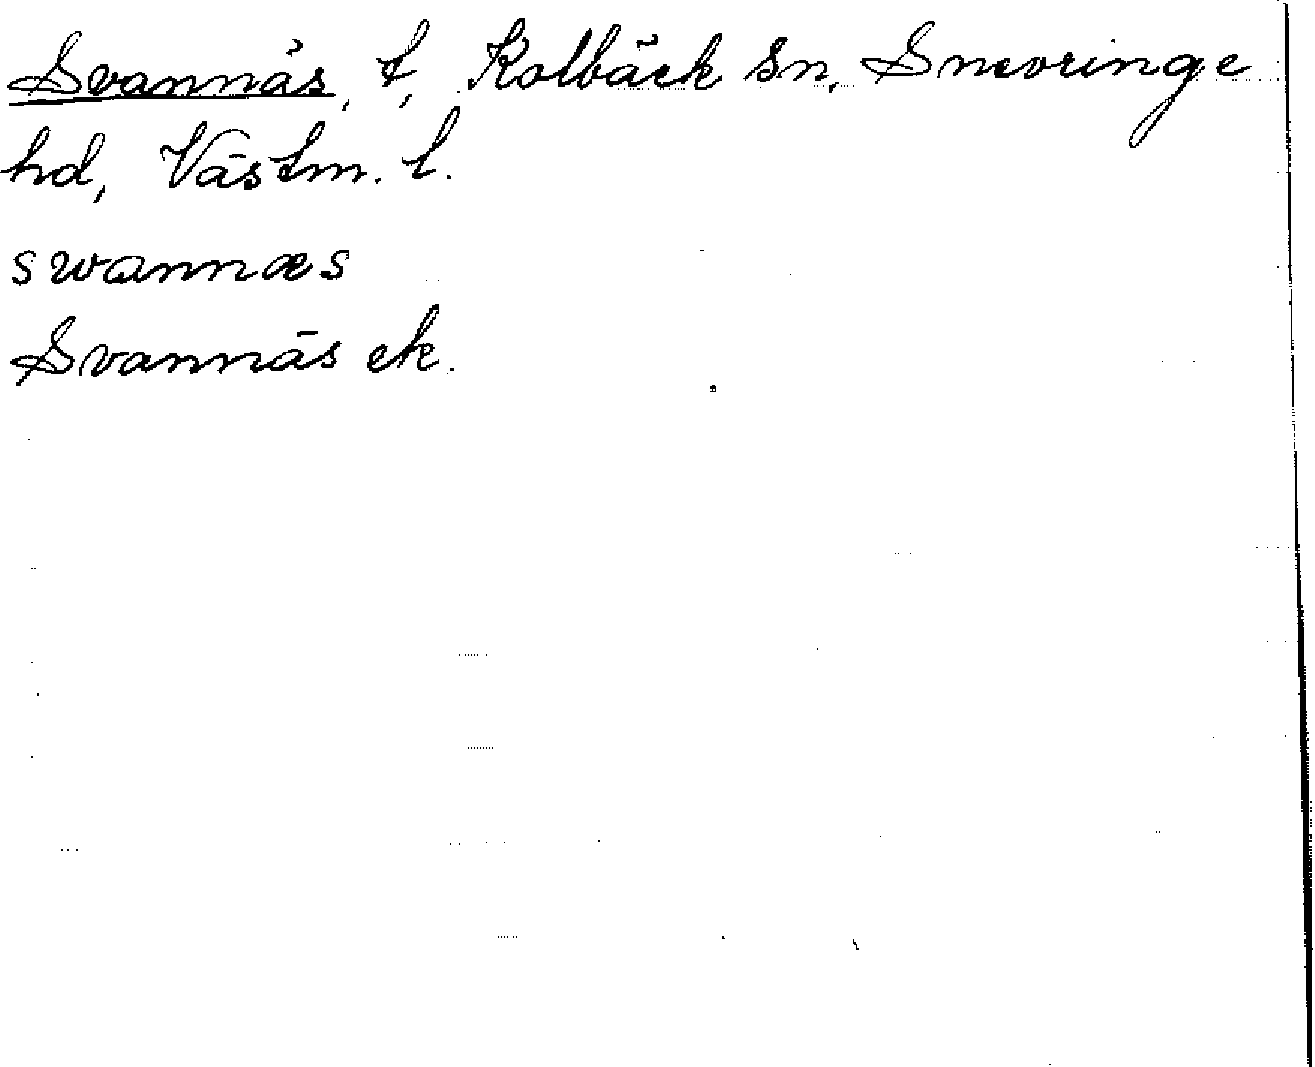 Svannäs, t, Kolbäck sn, Snevringe
hd, Västm. l.
swannæs
Svannäs ek.